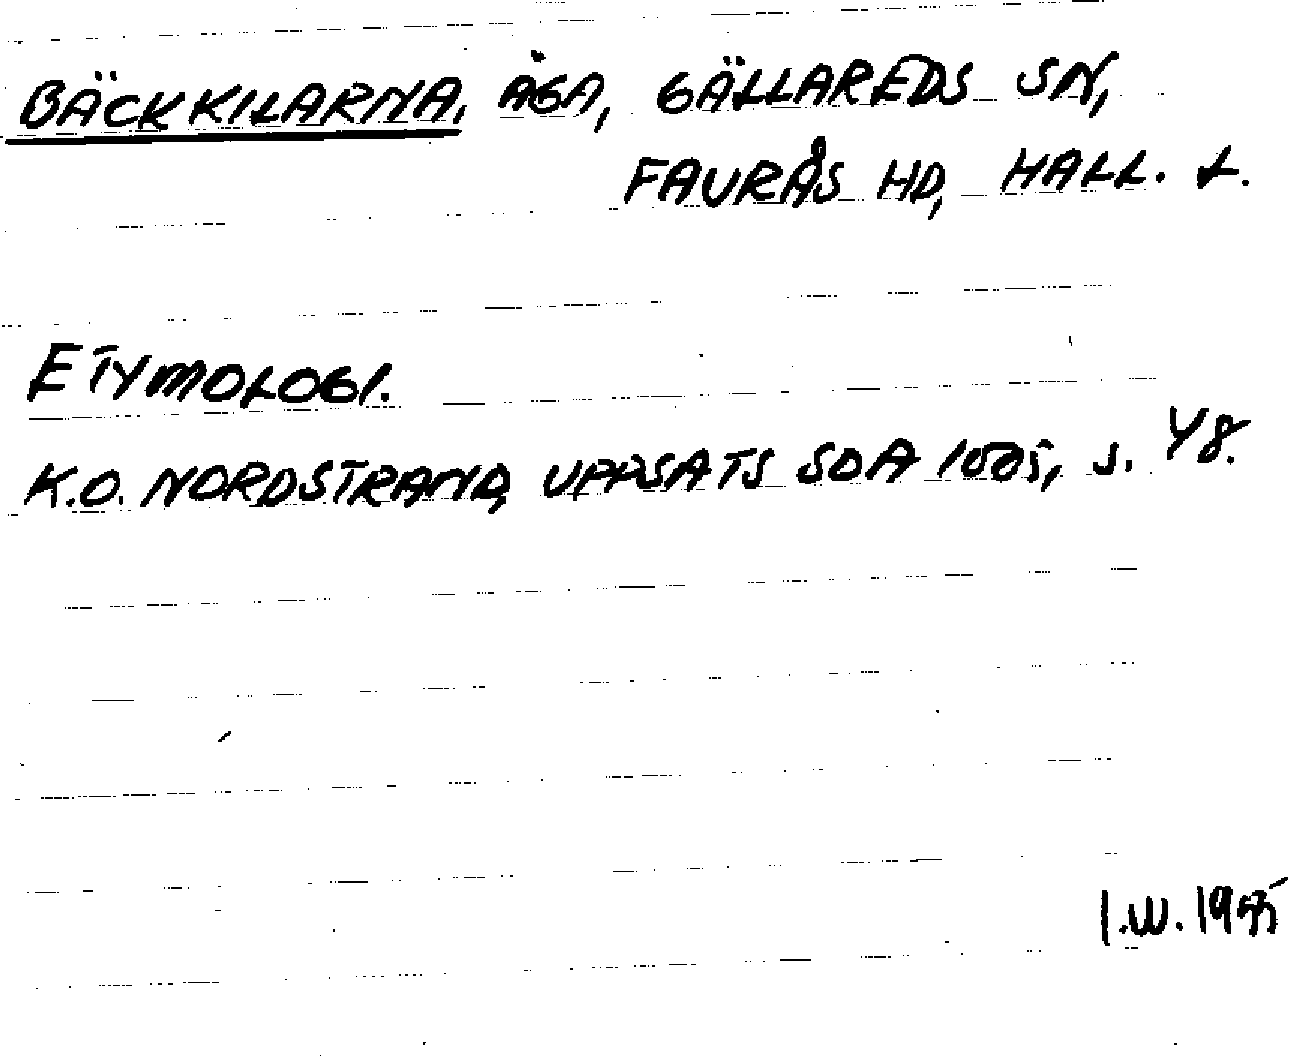 BÄCKKILARNA, ÄGA, GÄLLAREDS SN,
FAURÅS HD, HALL. L.
ETYMOLOGI.
K.O. NORDSTRAND, UPPSATS SOA s. 48.
I.W. 1975